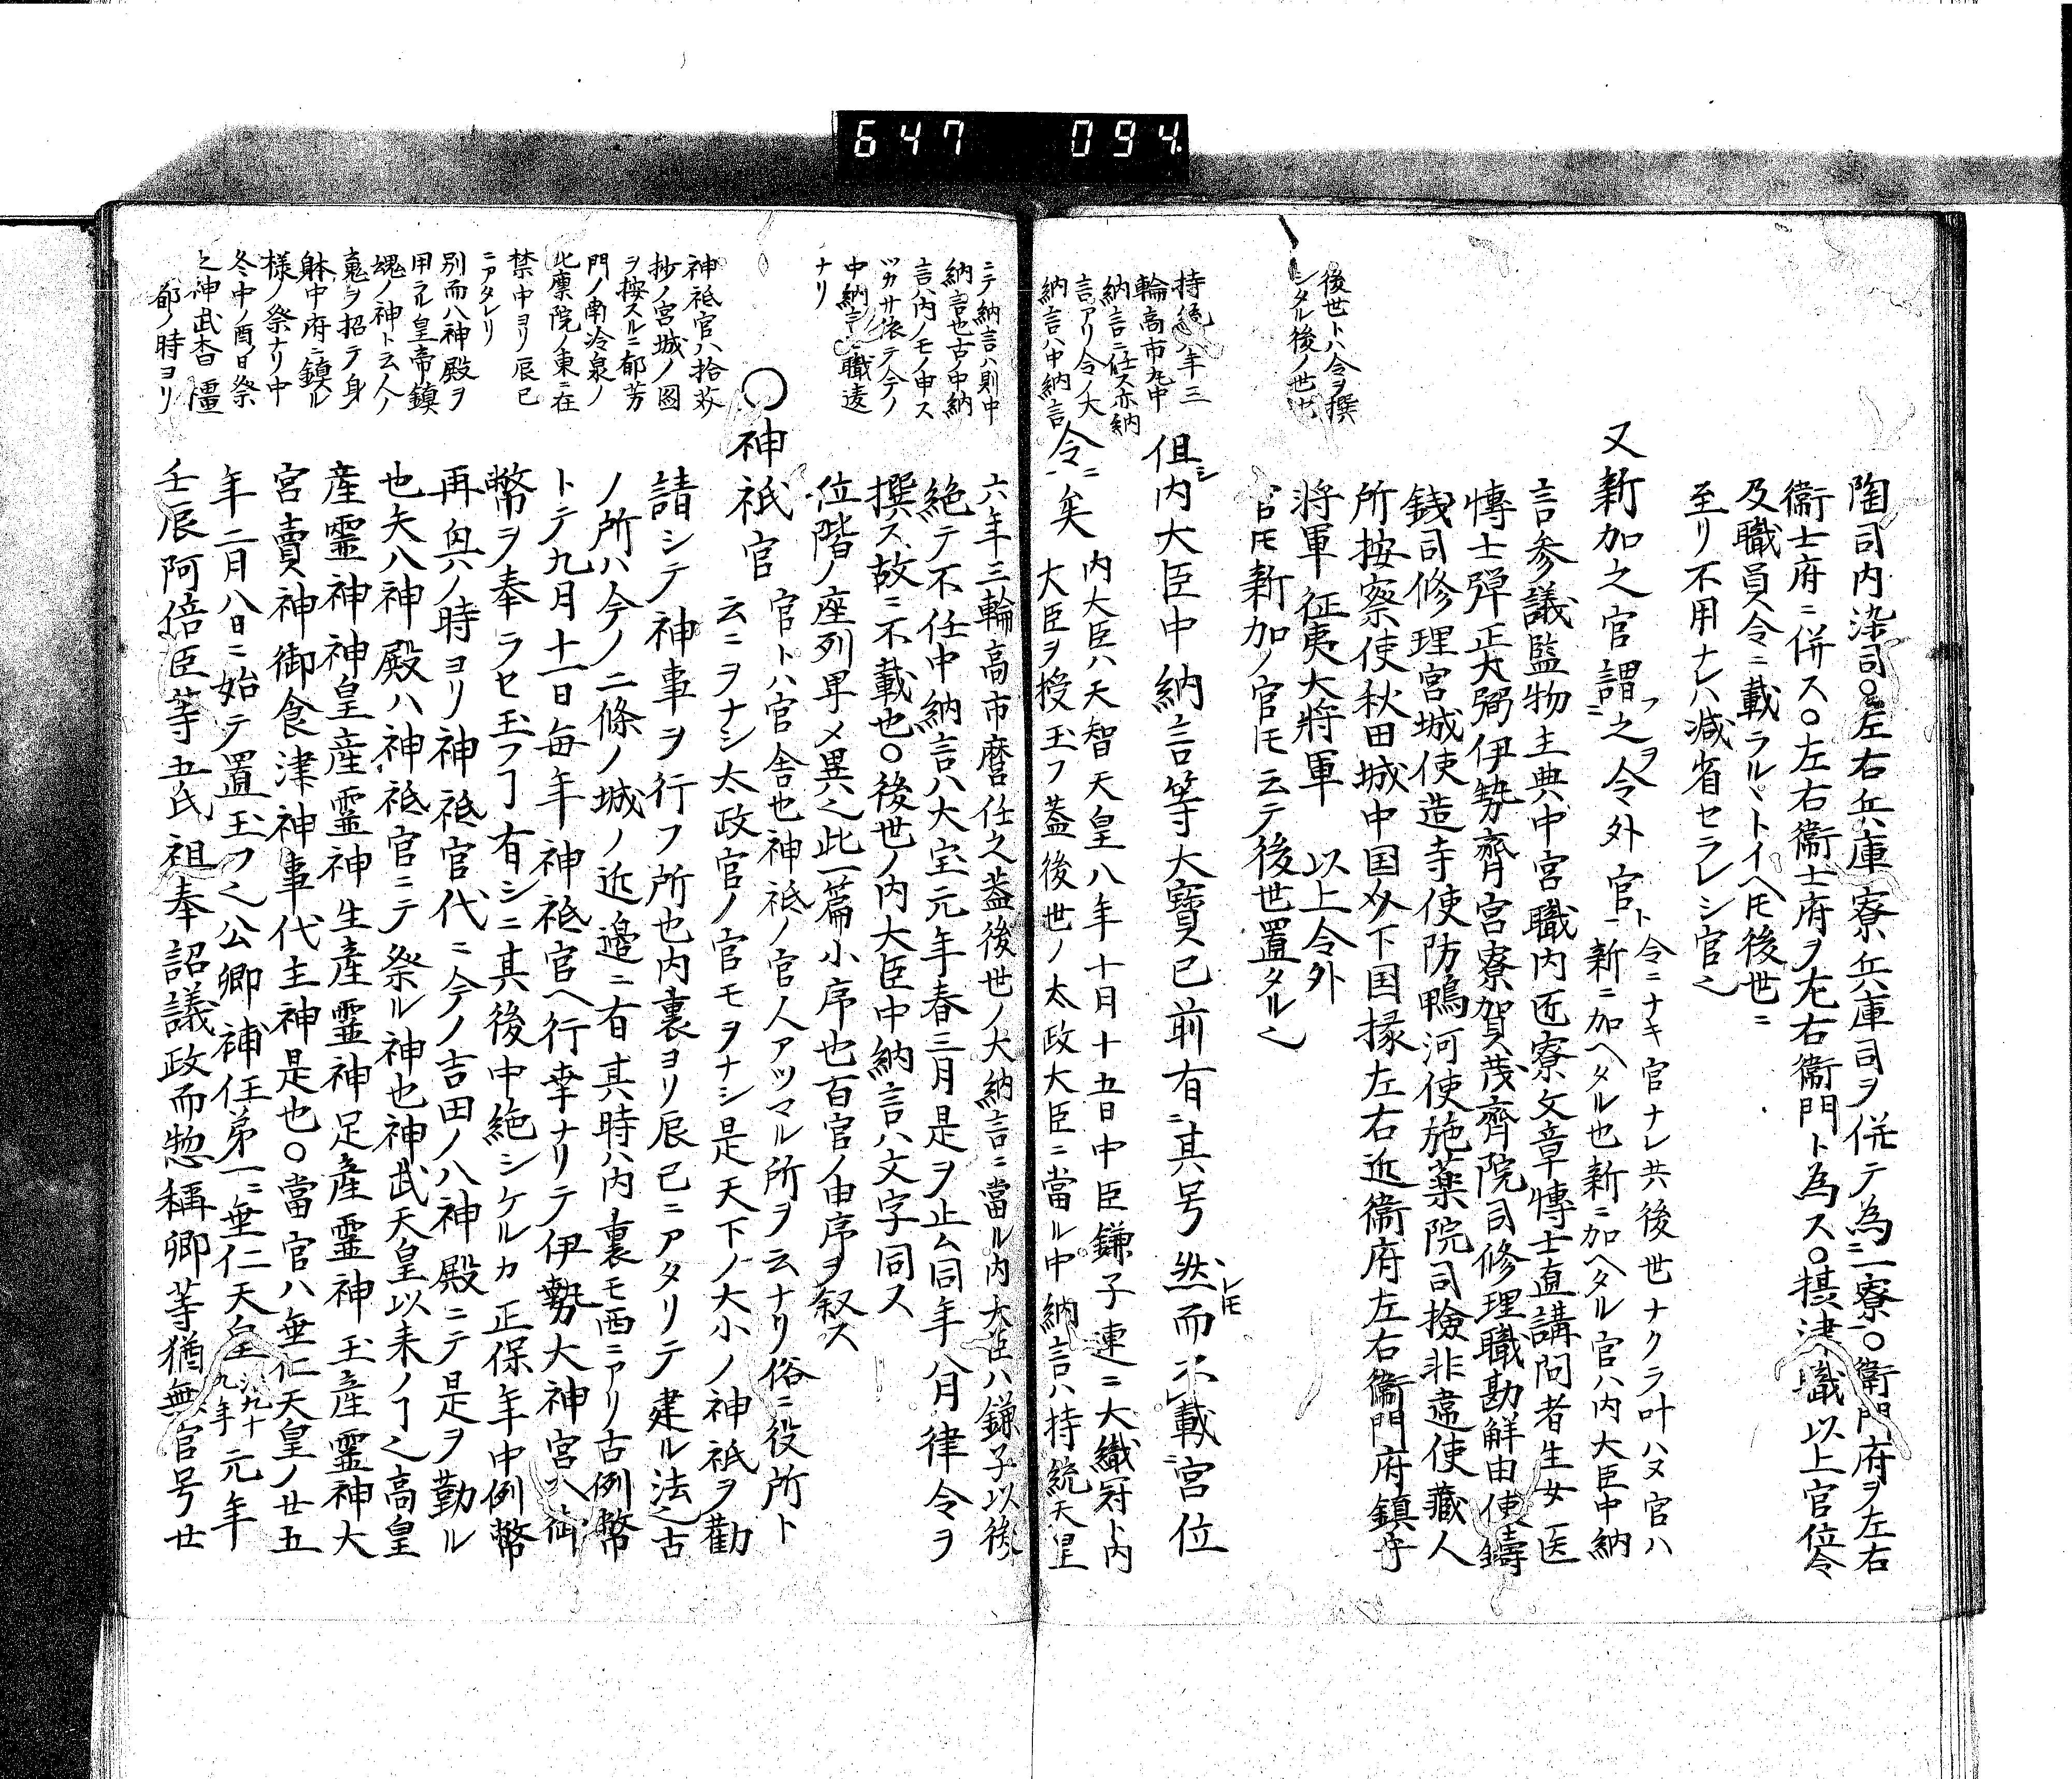 647 094
陶司内染司○左右兵庫寮兵庫司ヲ併テ為ニ一寮○衛門府ヲ左右
衛士府ニ併ス○左右衛士府ヲ左右衛門ト為ス○摂津職以上官位令
及職員令ニ載ラルヽトイヘ𪜈後世ニ
至リ不用ナレハ減省セラレシ官也
又新加之官謂フ之ヲ令外官ト
令ニナキ官ナレ共後世ナクラ叶ハヌ官ハ
新ニ加ヘタル也新ニ加ヘタル官ハ内大臣中納
言参議監物主典中宮職内匠寮文章博士直講問者生女医
博士弾正大弼伊勢齊宮寮賀茂齊院司修理職勘解由使鑄
銭司修理宮城使造寺使防鴨河使施薬院司撿非違使藏人
所按察使秋田城中国以下国掾左右近衛府左右衛門府鎮守
将軍征夷大将軍 以上令外
官𪜈新加ノ官𪜈云テ後世置タル也
後世トハ令ヲ撰
シタル後ノ世也
但シ内大臣中納言等大寶已前有ニ其号然而𪜈不載ニ官位
令ニ矣
内大臣ハ天智天皇八年十月十五日中臣鎌子連ニ大織冠ト内
大臣ヲ授玉フ蓋後世ノ太政大臣ニ當ル中納言ハ持統天皇
持統八年三
輪高市丸中
納言ニ任ス亦納
言アリ令ノ大
納言ハ中納言
ニテ納言ハ則中
納言也古ノ中納
言ハ内ノモノ申ス
ツカサ依テ今ノ
中納言ニ職遠
ナリ
六年三輪高市麿任之蓋後世ノ大納言ニ當ル内大臣ハ鎌子以後
絶テ不任中納言ハ大宝元年春三月是ヲ止ム同年八月律令ヲ
撰ス故ニ不載也○後世ノ内大臣中納言ハ文字同ス
位階ノ座列畢メ異也此一篇小序也百官ノ由序ヲ叙ス
○神祇官
官トハ官舎也神祇ノ官人アツマル所ヲ云ナリ俗ニ役所ト
云ニヲナシ太政官ノ官モヲナシ是天下ノ大小ノ神祇ヲ勸
請シテ神事ヲ行フ所也内裏ヨリ辰巳ニアタリテ建ル法也古
ノ所ハ今ノ二條ノ城ノ近邉ニ有其時ハ内裏モ西ニアリ古例幣
トテ九月十一日毎年神祇官ヘ行幸ナリテ伊勢大神宮ヘ御
幣ヲ奉ラセ玉フヿ有シニ其後中絶シケルカ正保年中例幣
再興ノ時ヨリ神祇官代ニ今ノ吉田ノ八神殿ニテ是ヲ勤ル
也矢八神殿ハ神祇官ニテ祭ル神也神武天皇以来ノヿ也高皇
産霊神神皇産霊神生産霊神足産霊神玉産霊神大
宮賣神御食津神事代主神是也○當官ハ垂仁天皇ノ廿五
年二月八日ニ始テ置玉フ也公卿補任第一ニ垂仁天皇治九十九年元年
壬辰阿倍臣等五氏祖奉詔議政而惣稱卿等猶無官号廿
神祇官ハ拾芥
抄ノ宮城ノ図
ヲ按スルニ郁芳
門ノ南冷泉ノ
北廩院ノ東ニ在
禁中ヨリ辰巳
ニアタレリ
別而八神殿ヲ
用ラル皇帝鎮
魂ノ神ト云人ノ
䰟ヲ招テ身
躰中府ニ鎮ル
様ノ祭ナリ中
冬中ノ酉ノ日祭
之神武杳橿
郁ノ時ヨリ